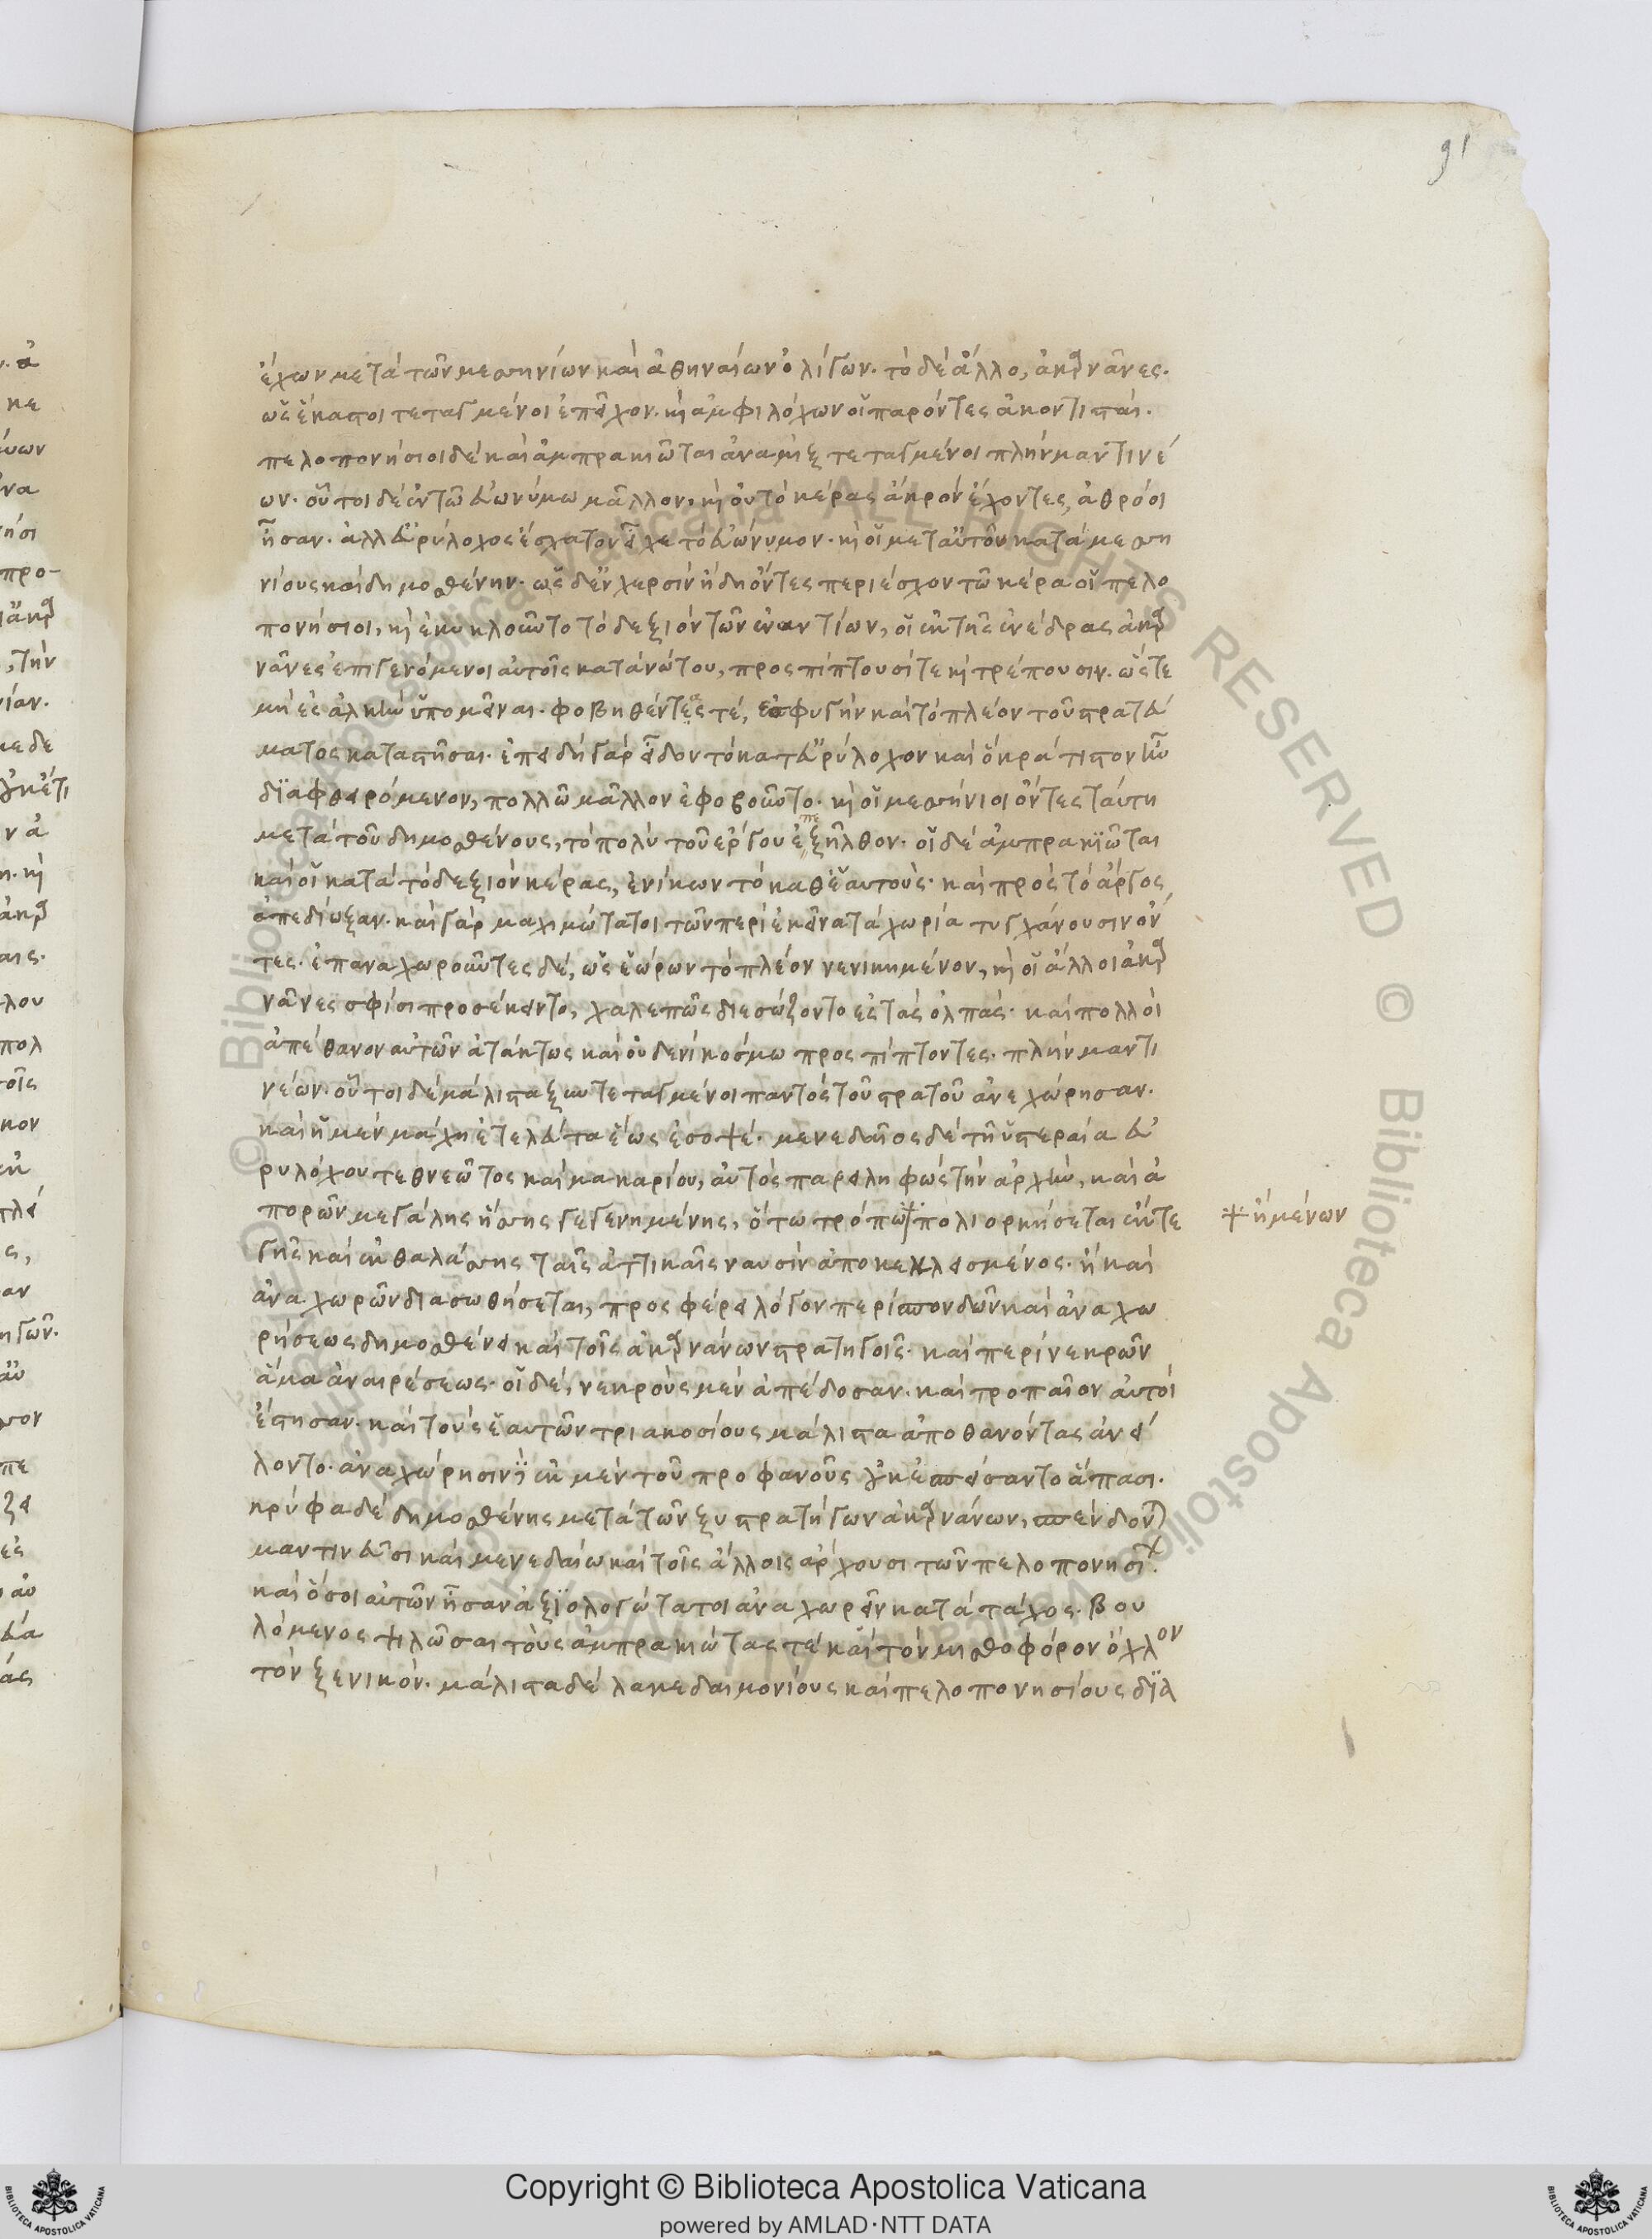 91
ἔχων μετὰ τῶν μεσσηνίων καὶ ἀθηναίων ὀλίγων. τὸ δὲ ἄλλο, ἀκαρνᾶνες.
ὡς ἕκαστοι τεταγμένοι ἐπεῖχον. καὶ ἀμφιλόχων οἱ παρόντες ἀκοντισταί.
πελοπονήσιοι δὲ καὶ ἀμπρακιῶται ἀναμὶξ τεταγμένοι πλὴν μαντινέ
ων. οὗτοι δὲ ἐν τῶ εὐωνύμω μᾶλλον, καὶ οὐ τὸ κέρας ἄκρον ἔχοντες, ἀθρόοι
ἦσαν. ἀλλ' εὐρύλοχος ἔσχατον εἶχε τὸ εὐώνυμον. καὶ οἱ μετ' αὐτοῦ κατὰ μεσση
νίους καὶ δημοσθένην. ὡς δ' ἐν χερσὶν ἤδη ὄντες περιέσχον τῶ κέρα οἱ πελο
πονήσιοι, καὶ ἐκυκλοῦντο τὸ δεξιὸν τῶν ἐναντίων, οἱ ἐκ τῆς ἐνέδρας ἀκαρ
νᾶνες ἐπιγενόμενοι αὐτοῖς κατὰ νώτου, προσπίπτουσί τε καὶ τρέπουσιν. ὥστε
μὴ ἐς ἀλκὴν ὑπομεῖναι. φοβηθέντας τέ, ἐς φυγὴν καὶ τὸ πλέον τοῦ στρατεύ
ματος καταστῆσαι. ἐπειδὴ γὰρ εἶδον τὸ κατ' εὐρύλοχον καὶ ὃ κράτιστον ἦν
διαφθειρόμενον, πολλῶ μᾶλλον ἐφοβοῦντο. καὶ οἱ μεσσήνιοι ὄντες ταύτη
μετὰ τοῦ δημοσθένους, τὸ πολὺ τοῦ ἔργου ἐπεξῆλθον. οἱ δὲ ἀμπρακιῶται
καὶ οἱ κατὰ τὸ δεξιὸν κέρας, ἐνίκων τὸ καθ' ἑαυτούς. καὶ πρὸς τὸ ἄργος
ἀπεδίωξαν. καὶ γὰρ μαχιμώτατοι τῶν περὶ ἐκεῖνα τὰ χωρία τυγχάνουσιν ὄν
τες. ἐπαναχωροῦντες δέ, ὡς ἑώρων τὸ πλέον νενικημένον, καὶ οἱ ἄλλοι ἀκαρ
νᾶνες σφίσι προσέκειντο, χαλεπῶς διεσώζοντο ἐς τὰς ὄλπας. καὶ πολλοὶ
ἀπέθανον αὐτῶν ἀτάκτως καὶ οὐδενὶ κόσμω προσπίπτοντες. πλὴν μαντι
νέων. οὗτοι δὲ μάλιστα ξυντεταγμένοι παντὸς τοῦ στρατοῦ ἀνεχώρησαν.
καὶ ἡ μὲν μάχη ἐτελεύτα ἕως ἐς ὀψέ. μενεδαῖος δὲ τῆ ὑστεραία εὐ
ρυλόχου τεθνεῶτος καὶ μακαρίου, αὐτὸς παρειληφὼς τὴν ἀρχὴν, καὶ ἀ
πορῶν μεγάλης ἥσσης γεγενημένης, ὅτω τρόπω πολιορκήσεται ἔκ τε
γῆς καὶ ἐκ θαλάσσης ταῖς ἀττικαῖς ναυσὶν ἀποκεκλεισμένος. ἢ καὶ
ἀναχωρῶν διασωθήσεται, προσφέρει λόγον περὶ σπονδῶν καὶ ἀναχω
ρήσεως δημοσθένει καὶ τοῖς ἀκαρνάνων στρατηγοῖς. καὶ περὶ νεκρῶν
ἅμα ἀναιρέσεως. οἱ δὲ, νεκροὺς μὲν ἀπέδοσαν. καὶ τροπαῖον αὐτοὶ
ἔστησαν. καὶ τοὺς ἑαυτῶν τριακοσίους μάλιστα ἀποθανόντας ἀνεί
λοντο. ἀναχώρησιν ἐκ μὲν τοῦ προφανοῦς οὐκ ἐσπείσαντο ἅπασι.
κρύφα δὲ δημοσθένης μετὰ τῶν ξυστρατήγων ἀκαρνάνων, σπένδονται
μαντινεῦσι καὶ μενεδαίω καὶ τοῖς ἄλλοις ἄρχουσι τῶν πελοπονησίων.
καὶ ὅσοι αὐτῶν ἦσαν ἀξιολογώτατοι ἀναχωρεῖν κατὰ τάχος. βου
λόμενος ψιλῶσαι τοὺς ἀμπρακιώτας τὲ καὶ τὸν μισθοφόρον ὄχλον
τὸν ξενικόν. μάλιστα δὲ λακεδαιμονίους καὶ πελοπονησίους δια
ἡμένων
Copyright © Biblioteca Apostolica Vaticana
powered by AMLAD·NTT DATA